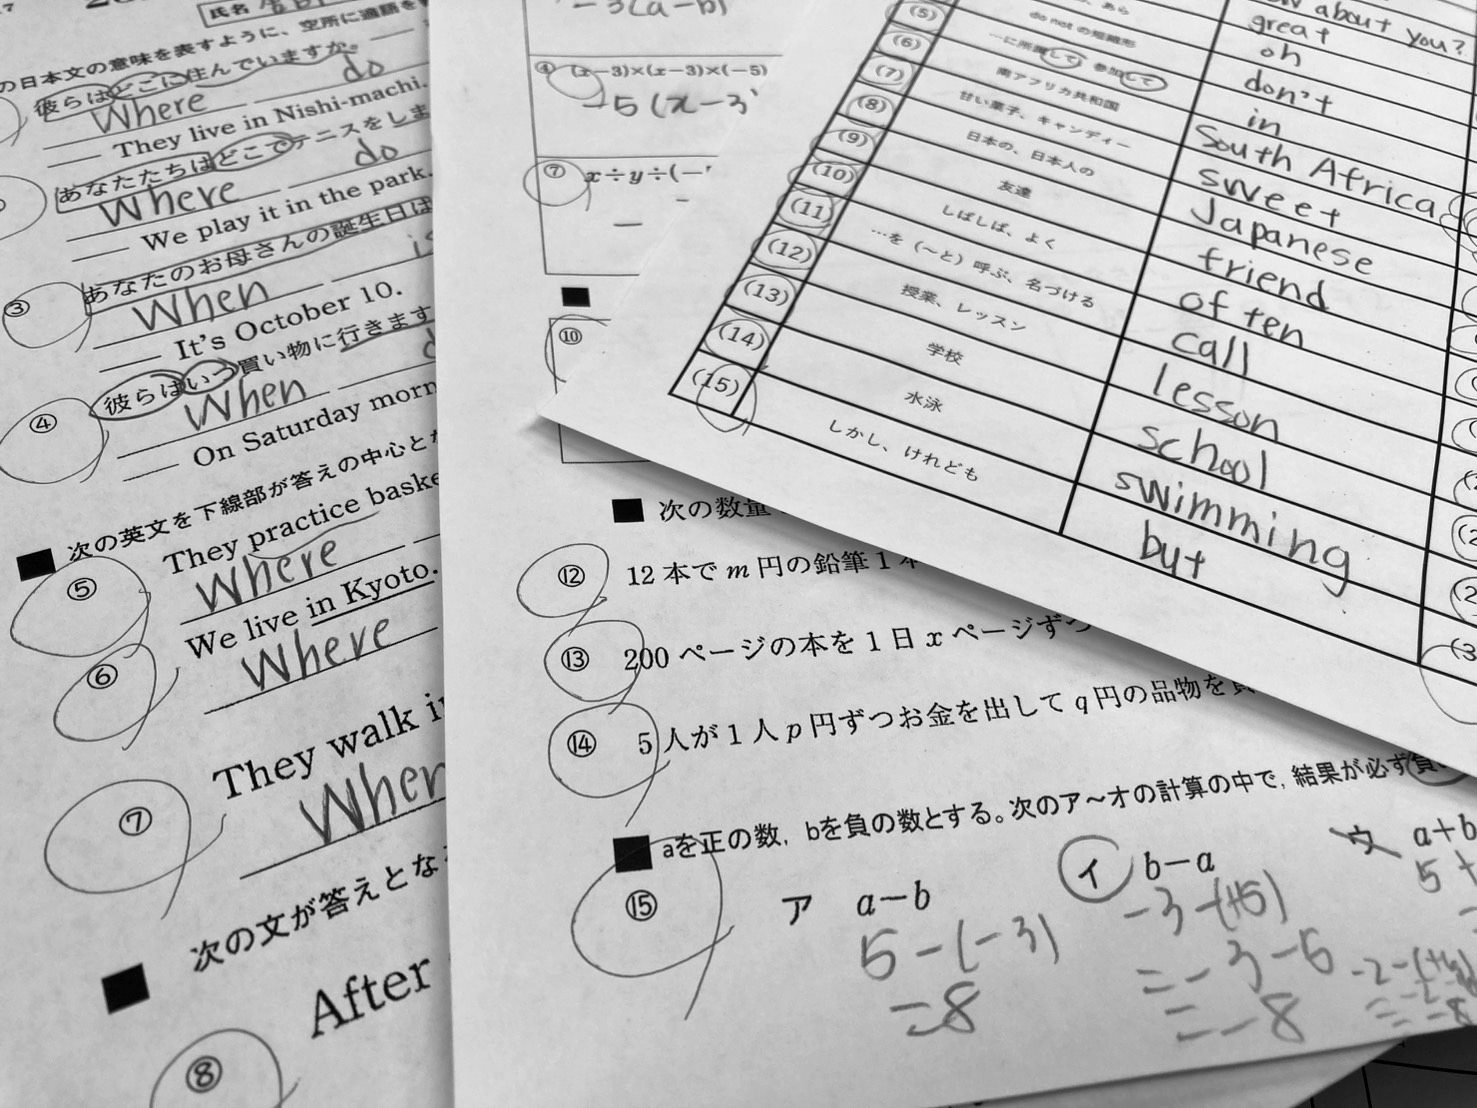 氏名
の日本文の意味を表すように、空所に適語を
彼らはどこに住んでいますか。
Where do
They live in Nishi-machi.
あなたたちはどこでテニスをしま
Where do
We play it in the park.
③ あなたのお母さんの誕生日は
When
It's October 10.
④ 彼らはいつ買い物に行きます
When
On Saturday morn
次の英文を下線部が答えの中心とな
⑤ They practice baske
Where
⑥ We live in Kyoto.
Where
⑦ They walk i
When
次の文が答えとな
⑧ After
-3(a-b)
④ (x-3)×(x-3)×(-5)
-5(x-3)
⑦ x÷y÷(-
⑩
次の数量
⑫ 12本でm円の鉛筆1本
⑬ 200ページの本を1日xページずつ
⑭ 5人が1人p円ずつお金を出してq円の品物を買
aを正の数, bを負の数とする。次のア~オの計算の中で, 結果が必ず負
⑮ ア a-b イ b-a ウ a+b
5-(-3)
=8
-3-(+5)
=-3-5
=-8
5+
about you?
great
(5) oh
(6) do notの短縮形 don't
(7) …に所属して 参加して in
(8) 南アフリカ共和国 South Africa
(9) 甘い菓子、キャンディー sweet
(10) 日本の、日本人の Japanese
(11) 友達 friend
(12) しばしば、よく often
(13) …を(~と)呼ぶ、名づける call
(14) 授業、レッスン lesson
(15) 学校 school
水泳 swimming
しかし、けれども but